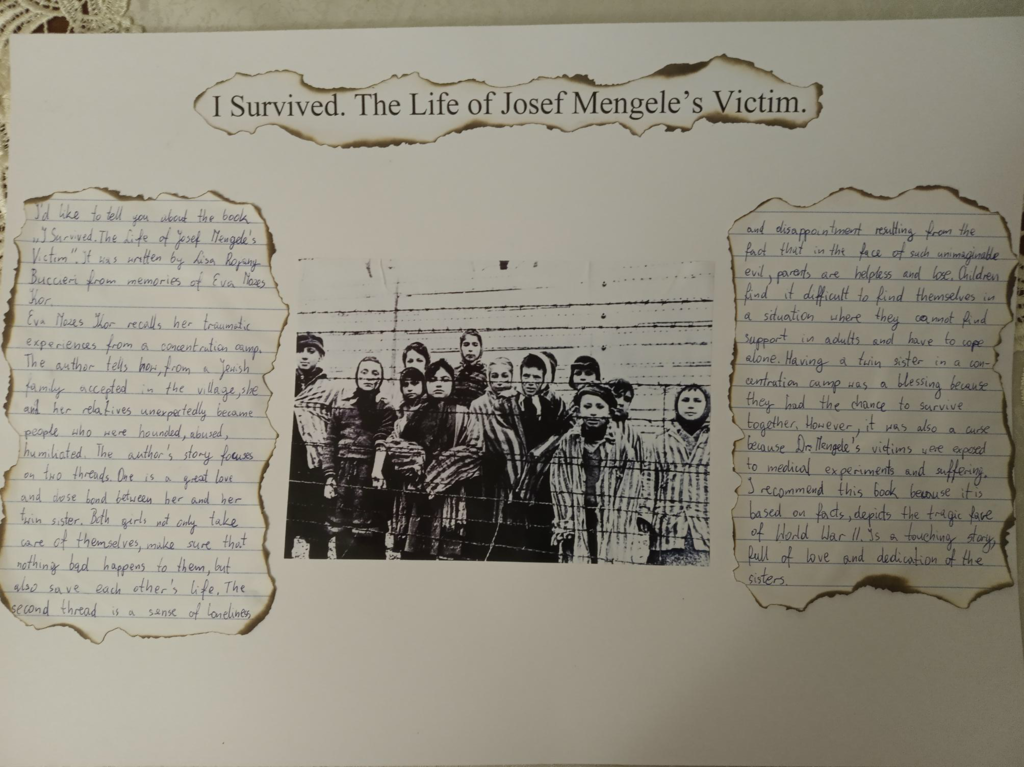 I Survived. The Life of Josef Mengele's Victim.
I'd like to tell you about the book
„I Survived. The Life of Josef Mengele's
Victim". It was written by Lisa Rojany
Buccieri from memories of Eva Mozes
Kor.
Eva Mozes Kor recalls her traumatic
experiences from a concentration camp.
The author tells how, from a Jewish
family accepted in the village, she
and her relatives unexpectedly became
people who were hounded, abused,
humiliated. The author's story focuses
on two threads. One is a great love
and close bond between her and her
twin sister. Both girls not only take
care of themselves, make sure that
nothing bad happens to them, but
also save each other's life. The
second thread is a sense of loneliness
and disappointment resulting from the
fact that in the face of such unimaginable
evil, parents are helpless and lose. Children
find it difficult to find themselves in
a situation where they cannot find
support in adults and have to cope
alone. Having a twin sister in a con-
centration camp was a blessing because
they had the chance to survive
together. However, it was also a curse
because Dr. Mengele's victims were exposed
to medical experiments and suffering.
I recommend this book because it is
based on facts, depicts the tragic fate
of World War II. Is a touching story,
full of love and dedication of the
sisters.